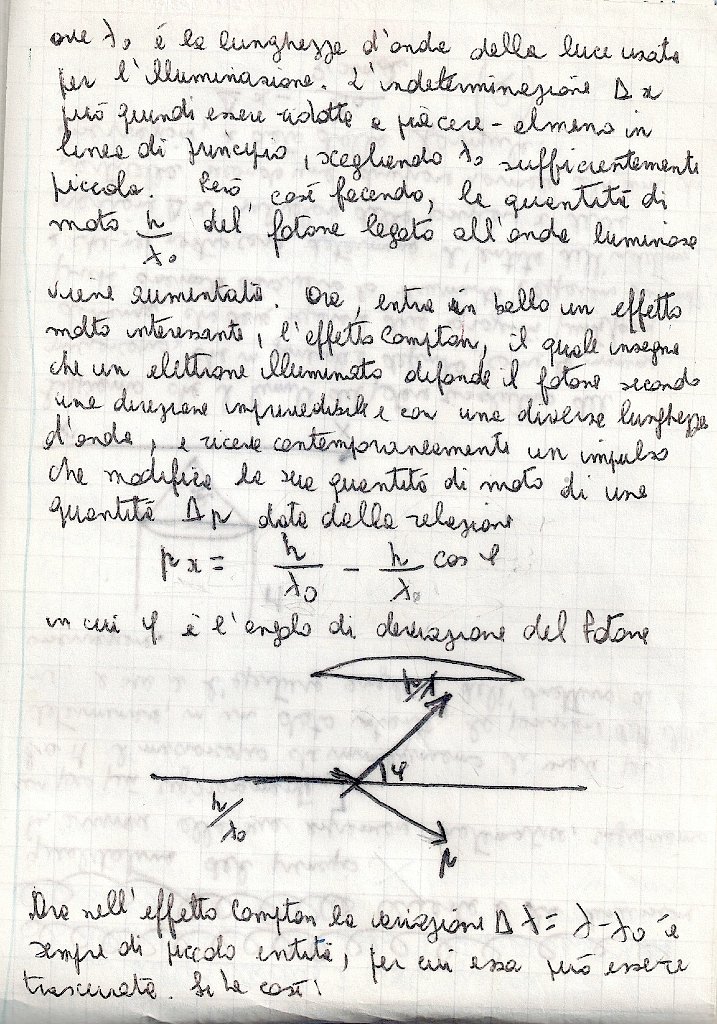 ove λ₀ é la lunghezza d'onda della luce usata
per l'illuminazione. L'indeterminazione Δx
può quindi essere ridotta a piacere - almeno in
linea di principio, scegliendo λ₀ sufficientemente
piccola. Però così facendo, la quantità di
moto h/λ₀ del fotone legato all'onda luminosa
viene aumentata. Ora, entra in ballo un effetto
molto interessante, l'effetto Compton, il quale insegna
che un elettrone illuminato difonde il fotone secondo
una direzione imprevedibile e con una diversa lunghezza
d'onda, e riceve contemporaneamente un impulso
che modifica la sua quantità di moto di una
quantità Δp data dalla relazione
px = h/λ₀ - h/λ₀ cos φ
in cui φ è l'angolo di deviazione del fotone
h/λ
φ
h/λ₀
p
Ora nell'effetto Compton la variazione Δλ = λ-λ₀ è
sempre di piccola entità, per cui essa può essere
trascurata. Si ha così: